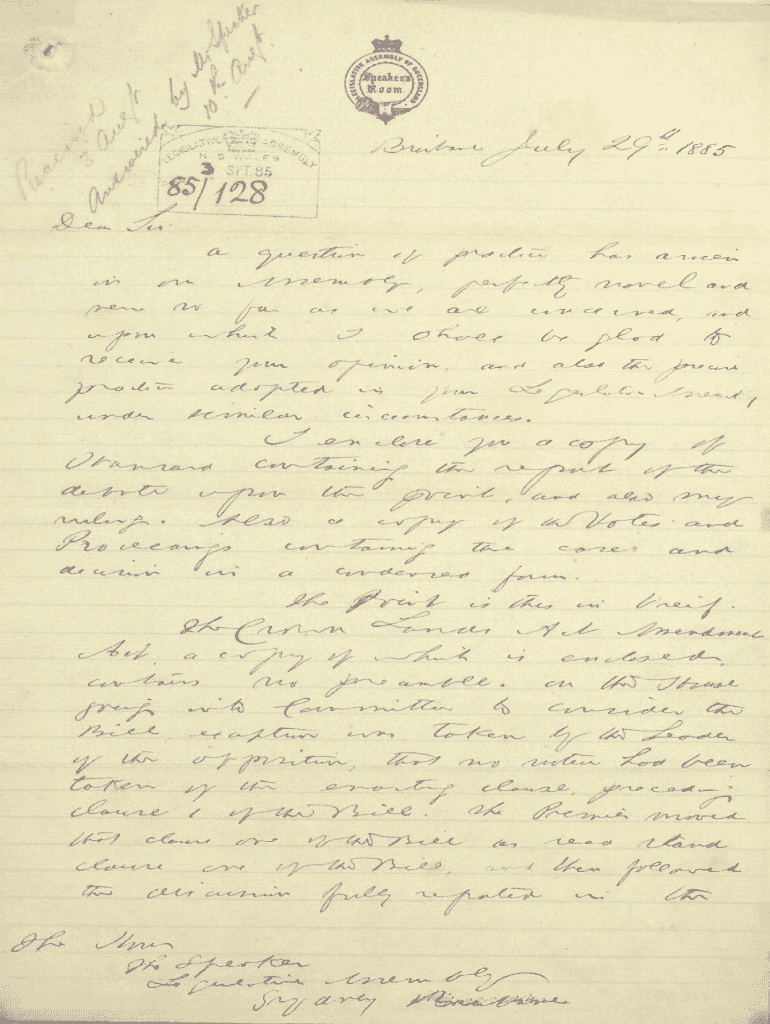 Received
3 Augt
Answered by Mr Speaker
10th Augt.
LEGISLATIVE ASSEMBLY OF QUEENSLAND
Speaker's
Room
LEGISLATIVE ASSEMBLY
N. S. WALES
3 SPT. 85
85/128
Brisbane July 29th 1885
Dear Sir
A question of practice has arisen
in our Assembly, perfectly novel and
new so far as we are concerned, and
upon which I should be glad to
receive your opinion, and also the precise
practice adopted in your Legislative Assembly,
under similar circumstances.
I enclose you a copy of
Hansard containing the report of the
debate upon the point, and also my
ruling. Also a copy of the Votes and
Proceedings containing the case and
decision in a condensed form.
The point is this in breif.
The Crown Lands Act Amendment
Act, a copy of which is enclosed,
contains no preamble. On the House
going into Committee to consider the
Bill, exception was taken by the Leader
of the opposition, that no notice had been
taken of the enacting clause, preceding
clause 1 of the Bill. The Premier moved
that clause one of the Bill as read stand
clause one of the Bill, and then followed
the discussion fully reported in the
The Honr
The Speaker
Legislative Assembly
Sydney